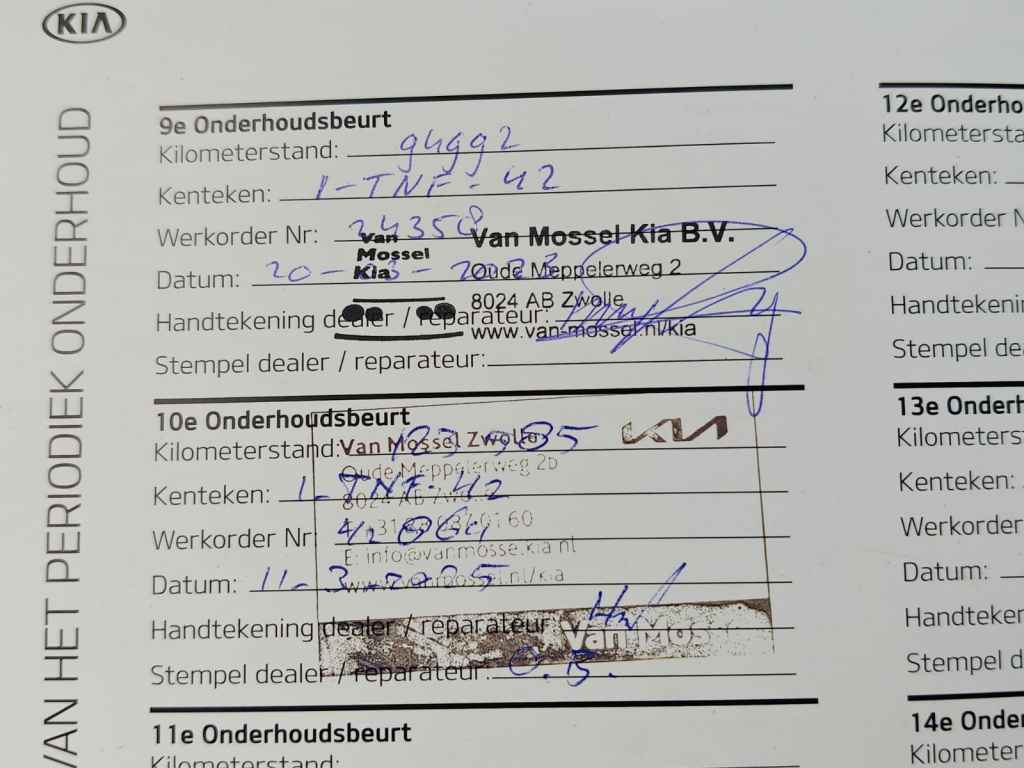 KIA
VAN HET PERIODIEK ONDERHOUD
9e Onderhoudsbeurt
Kilometerstand: 94992
Kenteken: 1-TNF-42
Werkorder Nr: 24358
Datum: 20-03-2023
Handtekening dealer / reparateur:
Stempel dealer / reparateur:
Van Mossel Kia
Van Mossel Kia B.V.
Oude Meppelerweg 2
8024 AB Zwolle
www.van-mossel.nl/kia
10e Onderhoudsbeurt
Kilometerstand:
Kenteken: 1-TNF-42
Werkorder Nr:
Datum: 11-3-2025
Handtekening dealer / reparateur
Stempel dealer / reparateur: O.B.
KIA
Van Mossel Zwolle
Oude Meppelerweg 2b
8024 AB Zwolle
Van Mos
11e Onderhoudsbeurt
Kilometerstand:
12e Onderho
Kilometersta
Kenteken:
Werkorder N
Datum:
Handtekenin
Stempel dea
13e Onderh
Kilometerst
Kenteken:
Werkorder
Datum:
Handteken
Stempel d
14e Onder
Kilometer